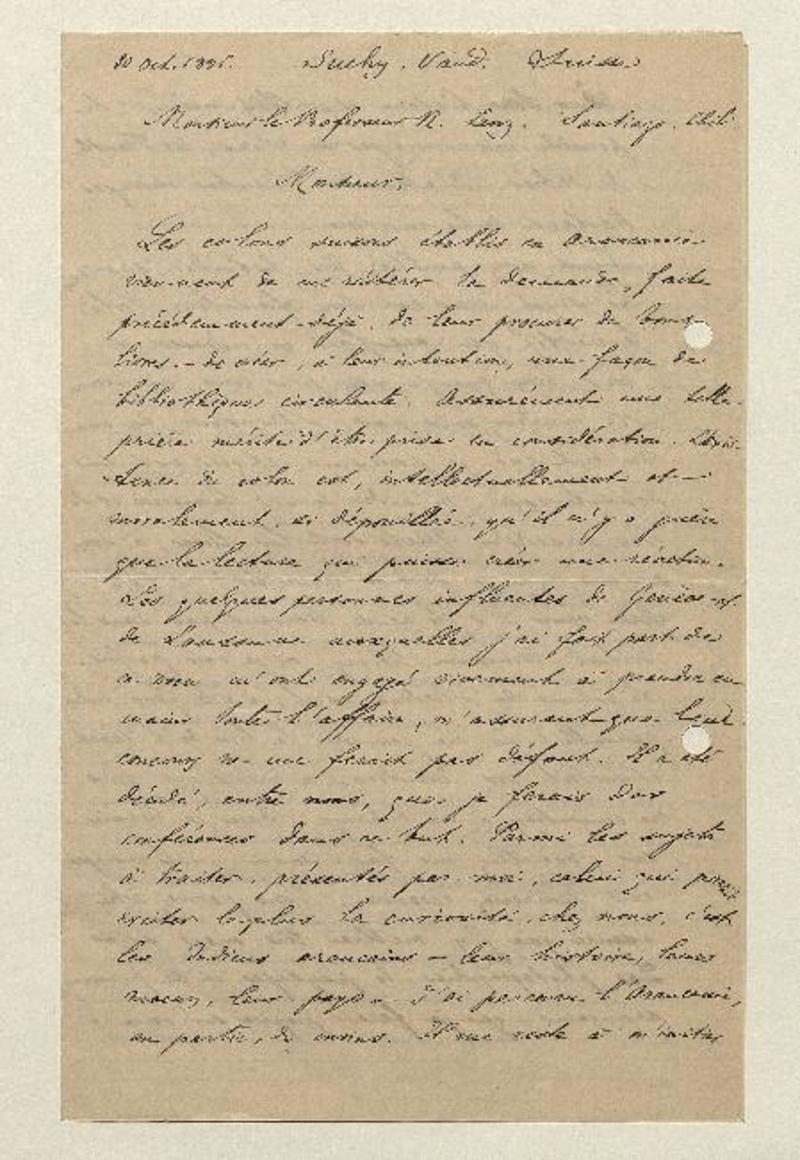 Oct. Suchy. Vaud. Suisse.
Monsieur le Professeur R. Lenz. Santiago. Chili
Monsieur,
Les colons suisses établis en Araucanie
viennent de me réitérer la demande, faite
précédemment déjà, de leur procurer de bons
livres. – de créer, à leur intention, une façon de
bibliothèque circulante. Assurément une telle
prière mérite d'être prise en considération. L'exis-
tence du colon est, intellectuellement et –
moralement, si dépouillée, qu'il n'y a guère
que la lecture qui puisse créer une réaction.
Les quelques personnes influentes de Genève et
de Lausanne auxquelles j'ai fait part de
ce vœu m'ont engagé vivement à prendre en
mains toute l'affaire, m'assurant que leur
concours ne me ferait pas défaut. Il a été
décidé, entre nous, que je ferais des
conférences dans ce but. Parmi les sujets
à traiter, présentés par moi, celui qui
exciter le plus la curiosité, chez nous, c'est
les Indiens araucains – leur histoire, leurs
mœurs, leur pays. J'ai parcouru l'Araucanie,
en partie, du moins. Il me reste à m'initier